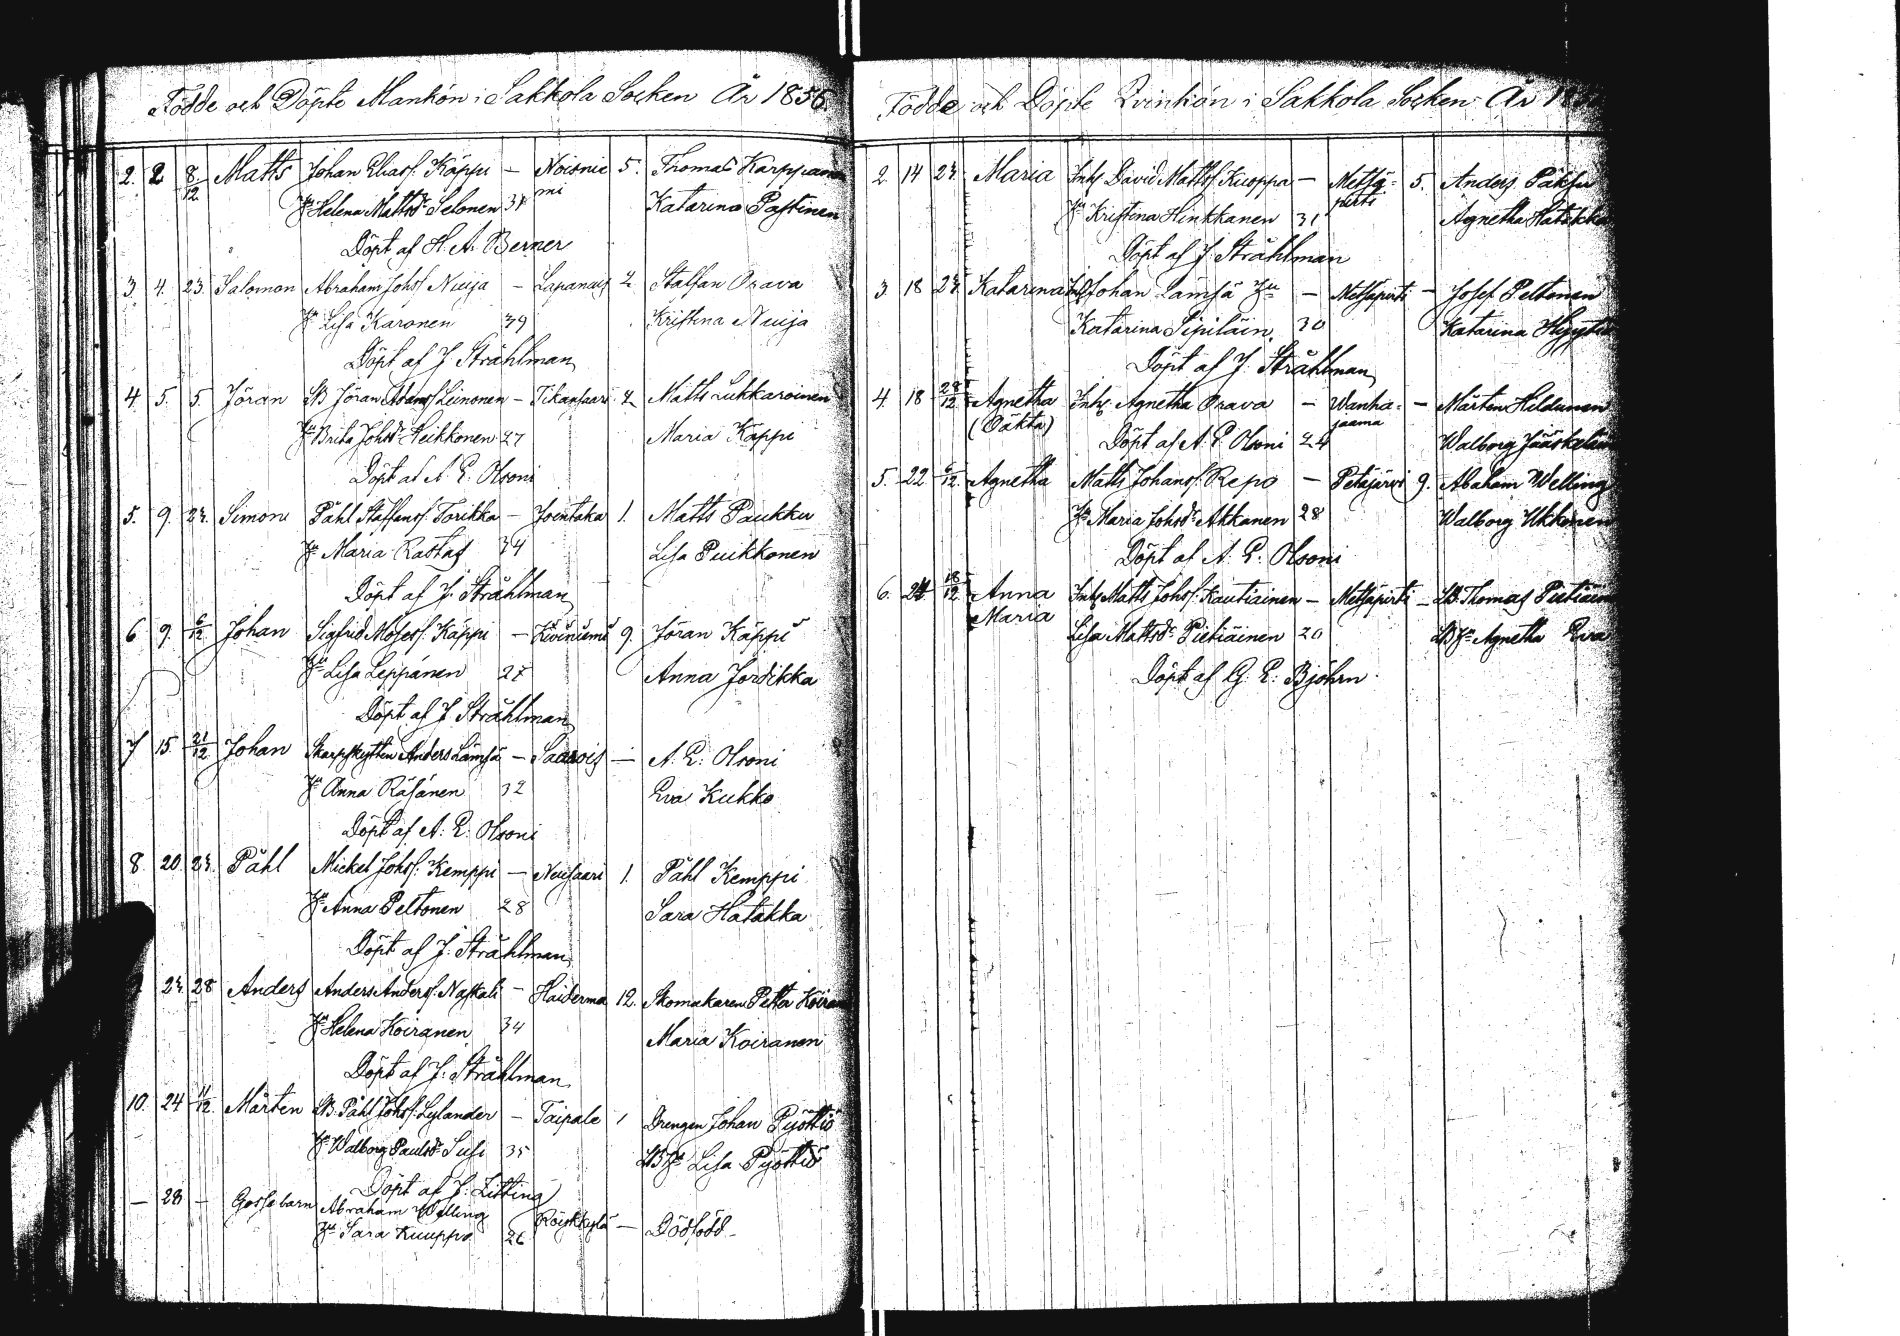 Födde och Döpte Mankön i Sakkola Socken År 1856.
2. 2 8/12 Matts Johan Eliass. Käppi – Noisnie 5. Thomas Karppanen
mi
Hu Helena Mattsdr Selonen 31 Katarina Pastinen
Döpt af H. A. Berner
3. 4. 23. Salomon Abraham Johss. Nuija – Lapanais 2 Staffan Orava
Hu Lisa Karonen 39 Kristina Nuija
Döpt af J. Stråhlman
4. 5. 5. Jöran LB Jöran Adams. Leinonen – Tikansaari 2 Matts Lukkaroinen
Hu Brita Johsdr Heikkonen 27 Maria Käppi
Döpt af A. E. Olsoni
5. 9. 23. Simon Påhl Staffanss. Torikka – Joentaka 1. Matts Paukku
Hu Maria Rastas 34 Lisa Puikkonen
Döpt af J. Stråhlman
6 9. 6/12 Johan Sigfrid Mosess. Käppi – Kiviniemi 9. Jöran Käppi
Hu Lisa Leppänen 27 Anna Jordikka
Döpt af J. Stråhlman
7 15 21/12 Johan Skarpskytten Anders Lämsä – Saarois – A. E. Olsoni
Hu Anna Räsänen 32 Eva Kukko
Döpt af A. E. Olsoni
8. 20. 23. Påhl Mickel Johss. Kemppi – Neusaari 1. Påhl Kemppi
Hu Anna Peltonen 28 Sara Hatakka
Döpt af J. Stråhlman
23. 28 Anders Anders Anderss. Naskali – Haiderma 12. Skomakaren Petter Koiranen
Hu Helena Koiranen 34 Maria Koiranen
Döpt af J. Stråhlman
10. 24 11/12 Mårten LB. Påhl Johss. Lylander – Taipale 1 Drengen Johan Pyöttiö
Hu Walborg Paulsdr Susi 35 LB Hu Lisa Pyöttiö
Döpt af J. Zitting
– 28 – Gossebarn Abraham Welling Röykkylä – Dödfödd –
Hu Sara Kuuppo 26
Födde och Döpte Qvinkön i Sakkola Socken År
2. 14 23. Maria Inhs David Mattss. Kuoppa – Metsä- 5. Anders Päksu
pirti
Hu Kristina Hinkkanen 31 Agnetha Hatakka
Döpt af J. Stråhlman
3 18 23. Katarina Inhs Johan Lämsä Hu – Metsäpirti – Josef Peltonen
Katarina Sipiläin. 30 Katarina
Döpt af J. Stråhlman
4. 18 28/12 Agnetha Inhs Agnetha Orava – Wanha- – Mårten Hildunen
(Oäkta) jaama
Döpt af A. E. Olsoni 24 Walborg Jääskeläin
5. 22 6/12 Agnetha Matts Johanss. Repo – Petäjärvi 9. Abraham Welling
Hu Maria Johsdr Akkanen 28 Walborg Ukkonen
Döpt af A. E. Olsoni
6. 24 18/12 Anna Inhs Matts Johss. Kautiainen – Metsäpirti – LB. Thomas Pietiäin
Maria
Lisa Mattsdr Pietiäinen 20 LB Hu Agnetha Eva
Döpt af G. E. Bjöhrn